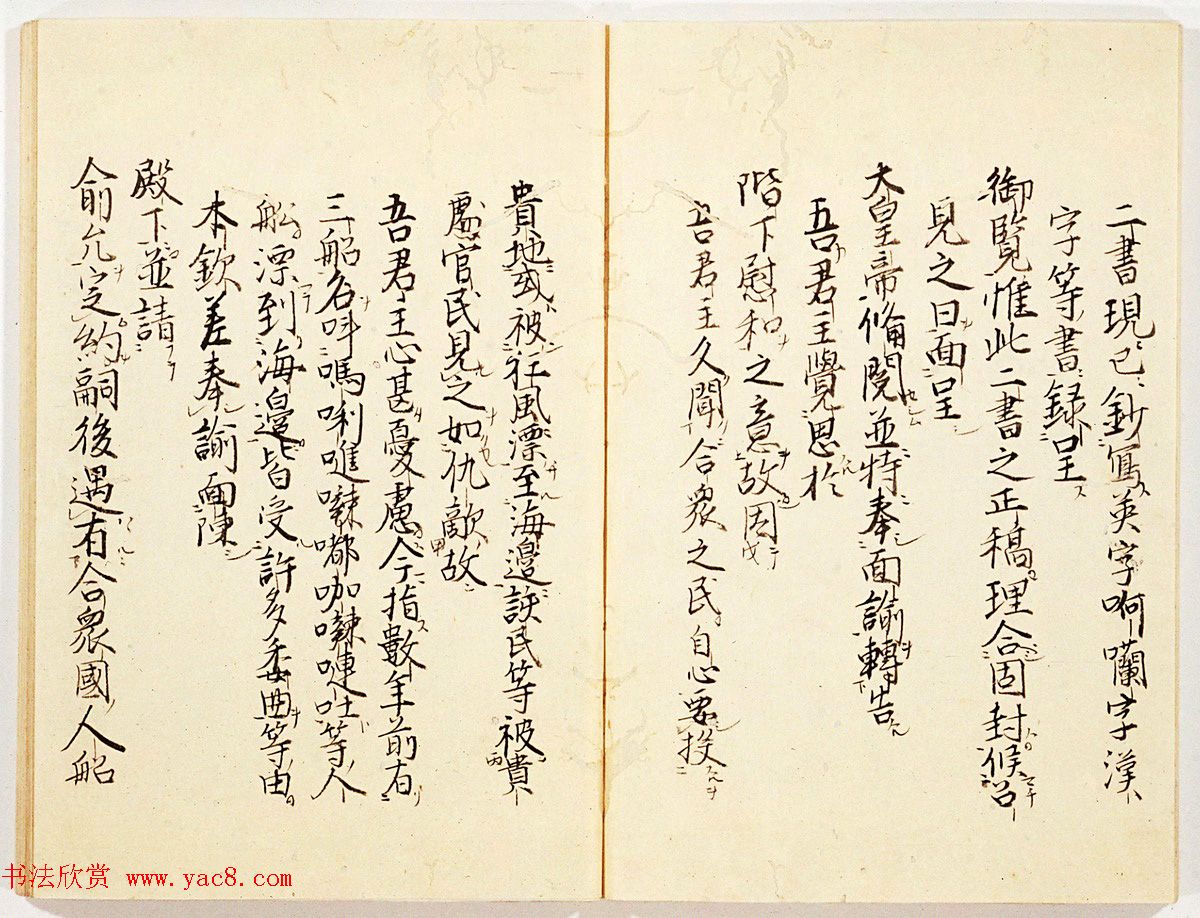 二書現已鈔寫英字啊囒字漢
字等書録呈
御覧惟此二書之正稿理合固封候召
見之日面呈
大皇帝脩閱並特奉面諭轉告
吾君主覺思於
階下慰和之意故因
吾君主久聞合衆之民自心要投
貴地或被狂風漂至海邉該民等被貴
處官民見之如仇敵故
吾君主心甚憂慮今指數年前有
三船名呌嗎唎㗨㘑嘟咖㘑嗹吐等人
船漂到海邉皆受許多委曲等由
本欽差奉諭面陳
殿下並請
俞允定約嗣後遇有合衆國人船
书法欣赏 www.yac8.com